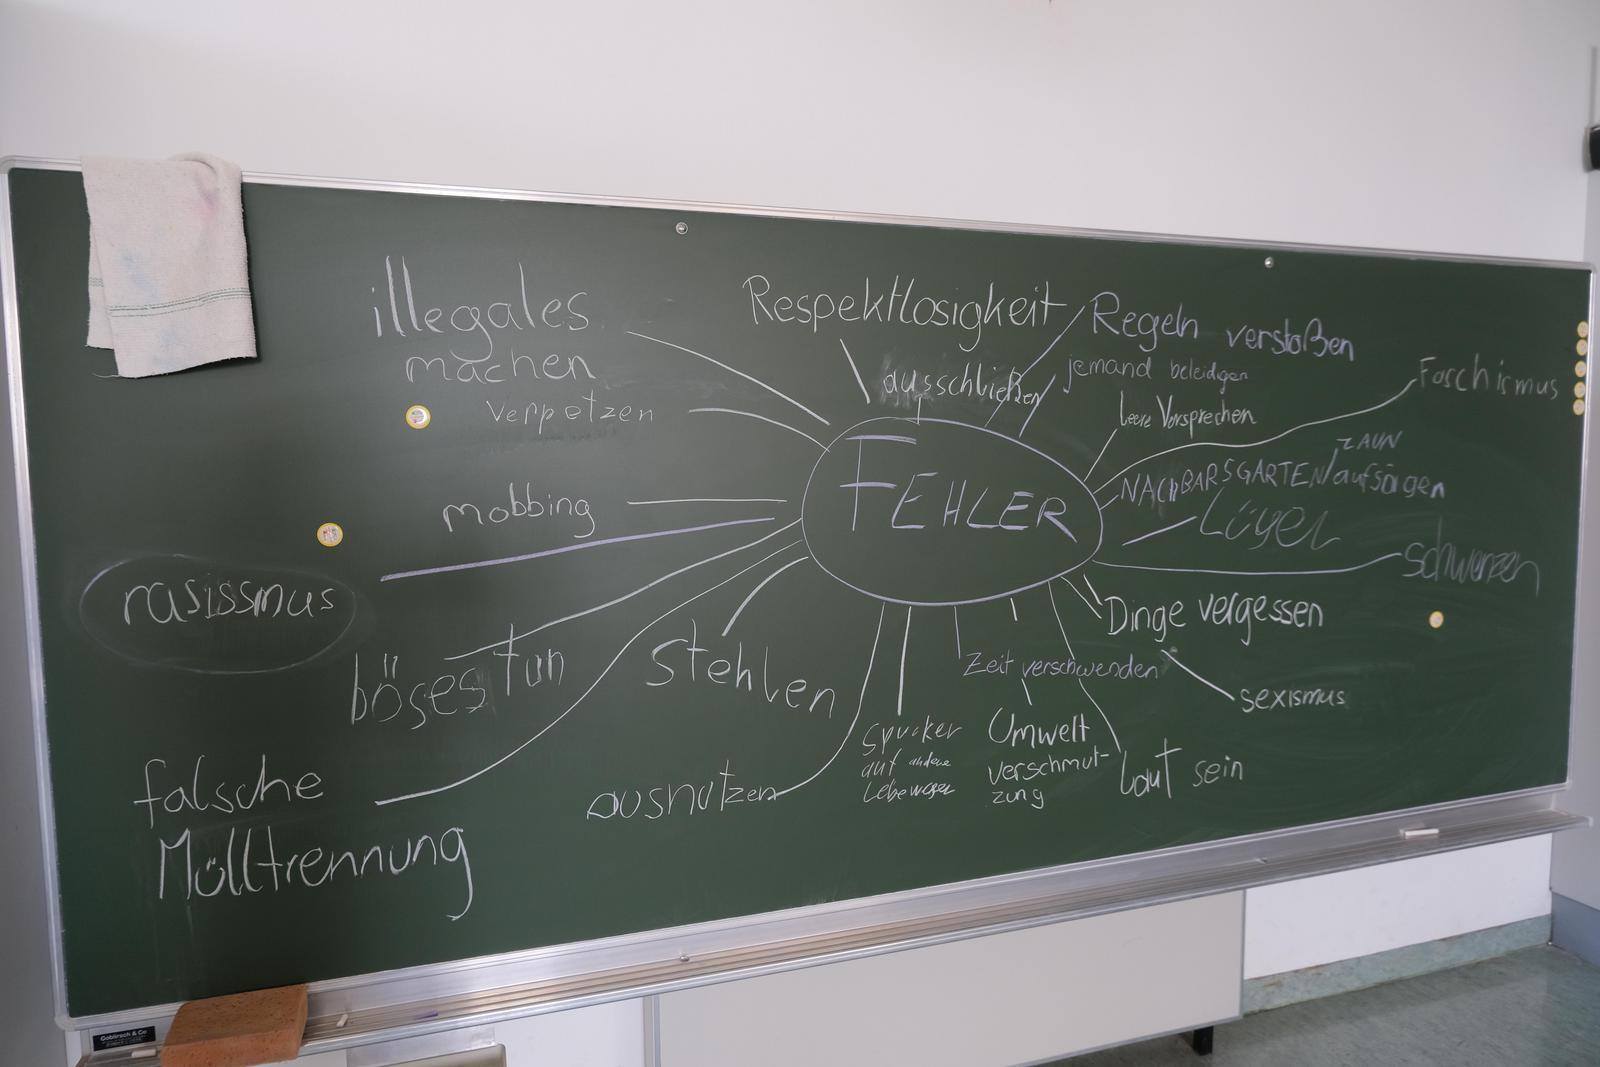 illegales
machen
verpetzen
mobbing
rasissmus
böses tun
falsche
Mülltrennung
stehlen
ausnutzen
Respektlosigkeit
ausschließen
FEHLER
Regeln verstoßen
jemand beleidigen
leere Versprechen
Faschismus
ZAUN
NACHBARSGARTEN/aufsägen
Lügen
schwenzen
Dinge vergessen
sexismus
Zeit verschwenden
Spucken
auf andere
Lebewesen
Umwelt
verschmut-
zung
laut sein